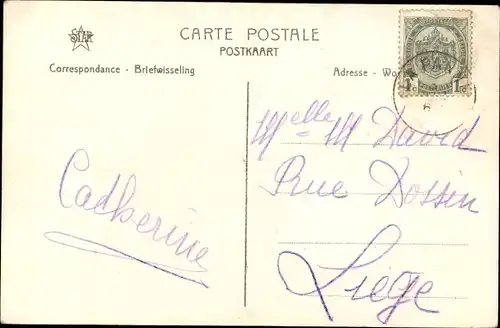 STAR
CARTE POSTALE
POSTKAART
Correspondance - Briefwisseling
Adresse - Wo
1 1
Catherine
Melle M. David
Rue Dossin
Liège